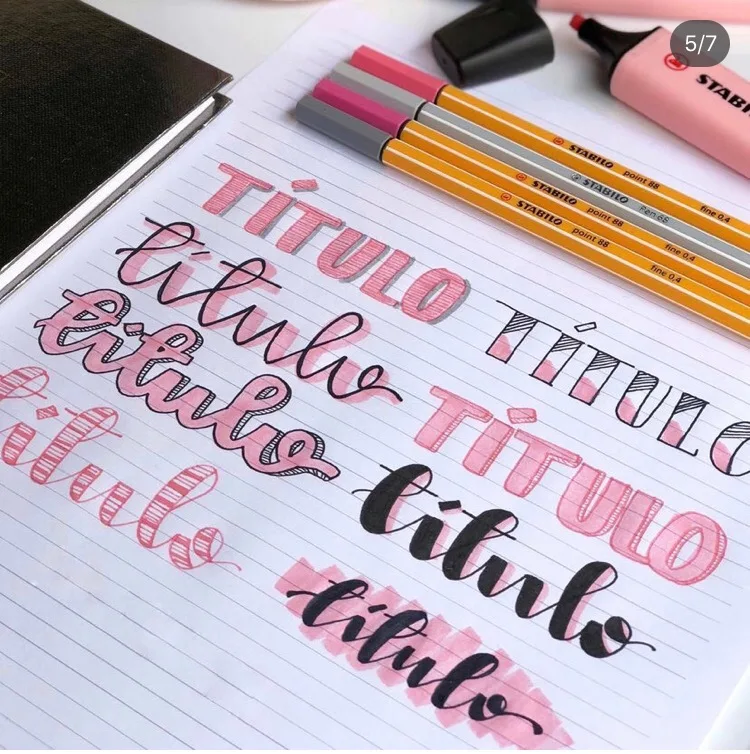 5/7
STABIL
STABILO point 88 fine 0.4
STABILO Pen 68
STABILO point 88 fine 0.4
STABILO point 88 fine 0.4
TÍTULO
título
TÍTULO
título
TÍTULO
título
título
título